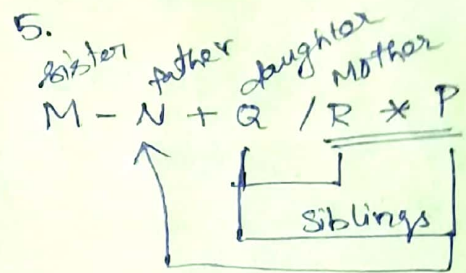 5.
sister father daughter Mother
M - N + Q / R * P
siblings